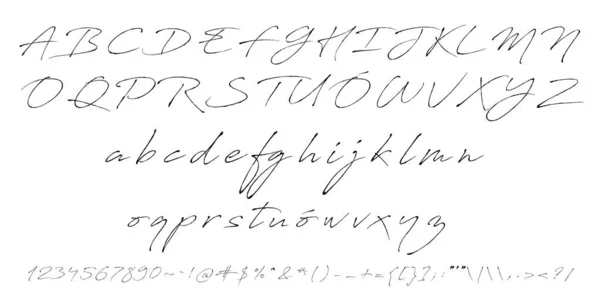 A B C D E F G H I J K L M N
O Q P R S T U Ó W V X Y Z
a b c d e f g h i j k l m n
o q p r s t u ó w v x y z
1234567890~·!@#$%^&*()-_+={[}];:"'"\/|\\,.><?/